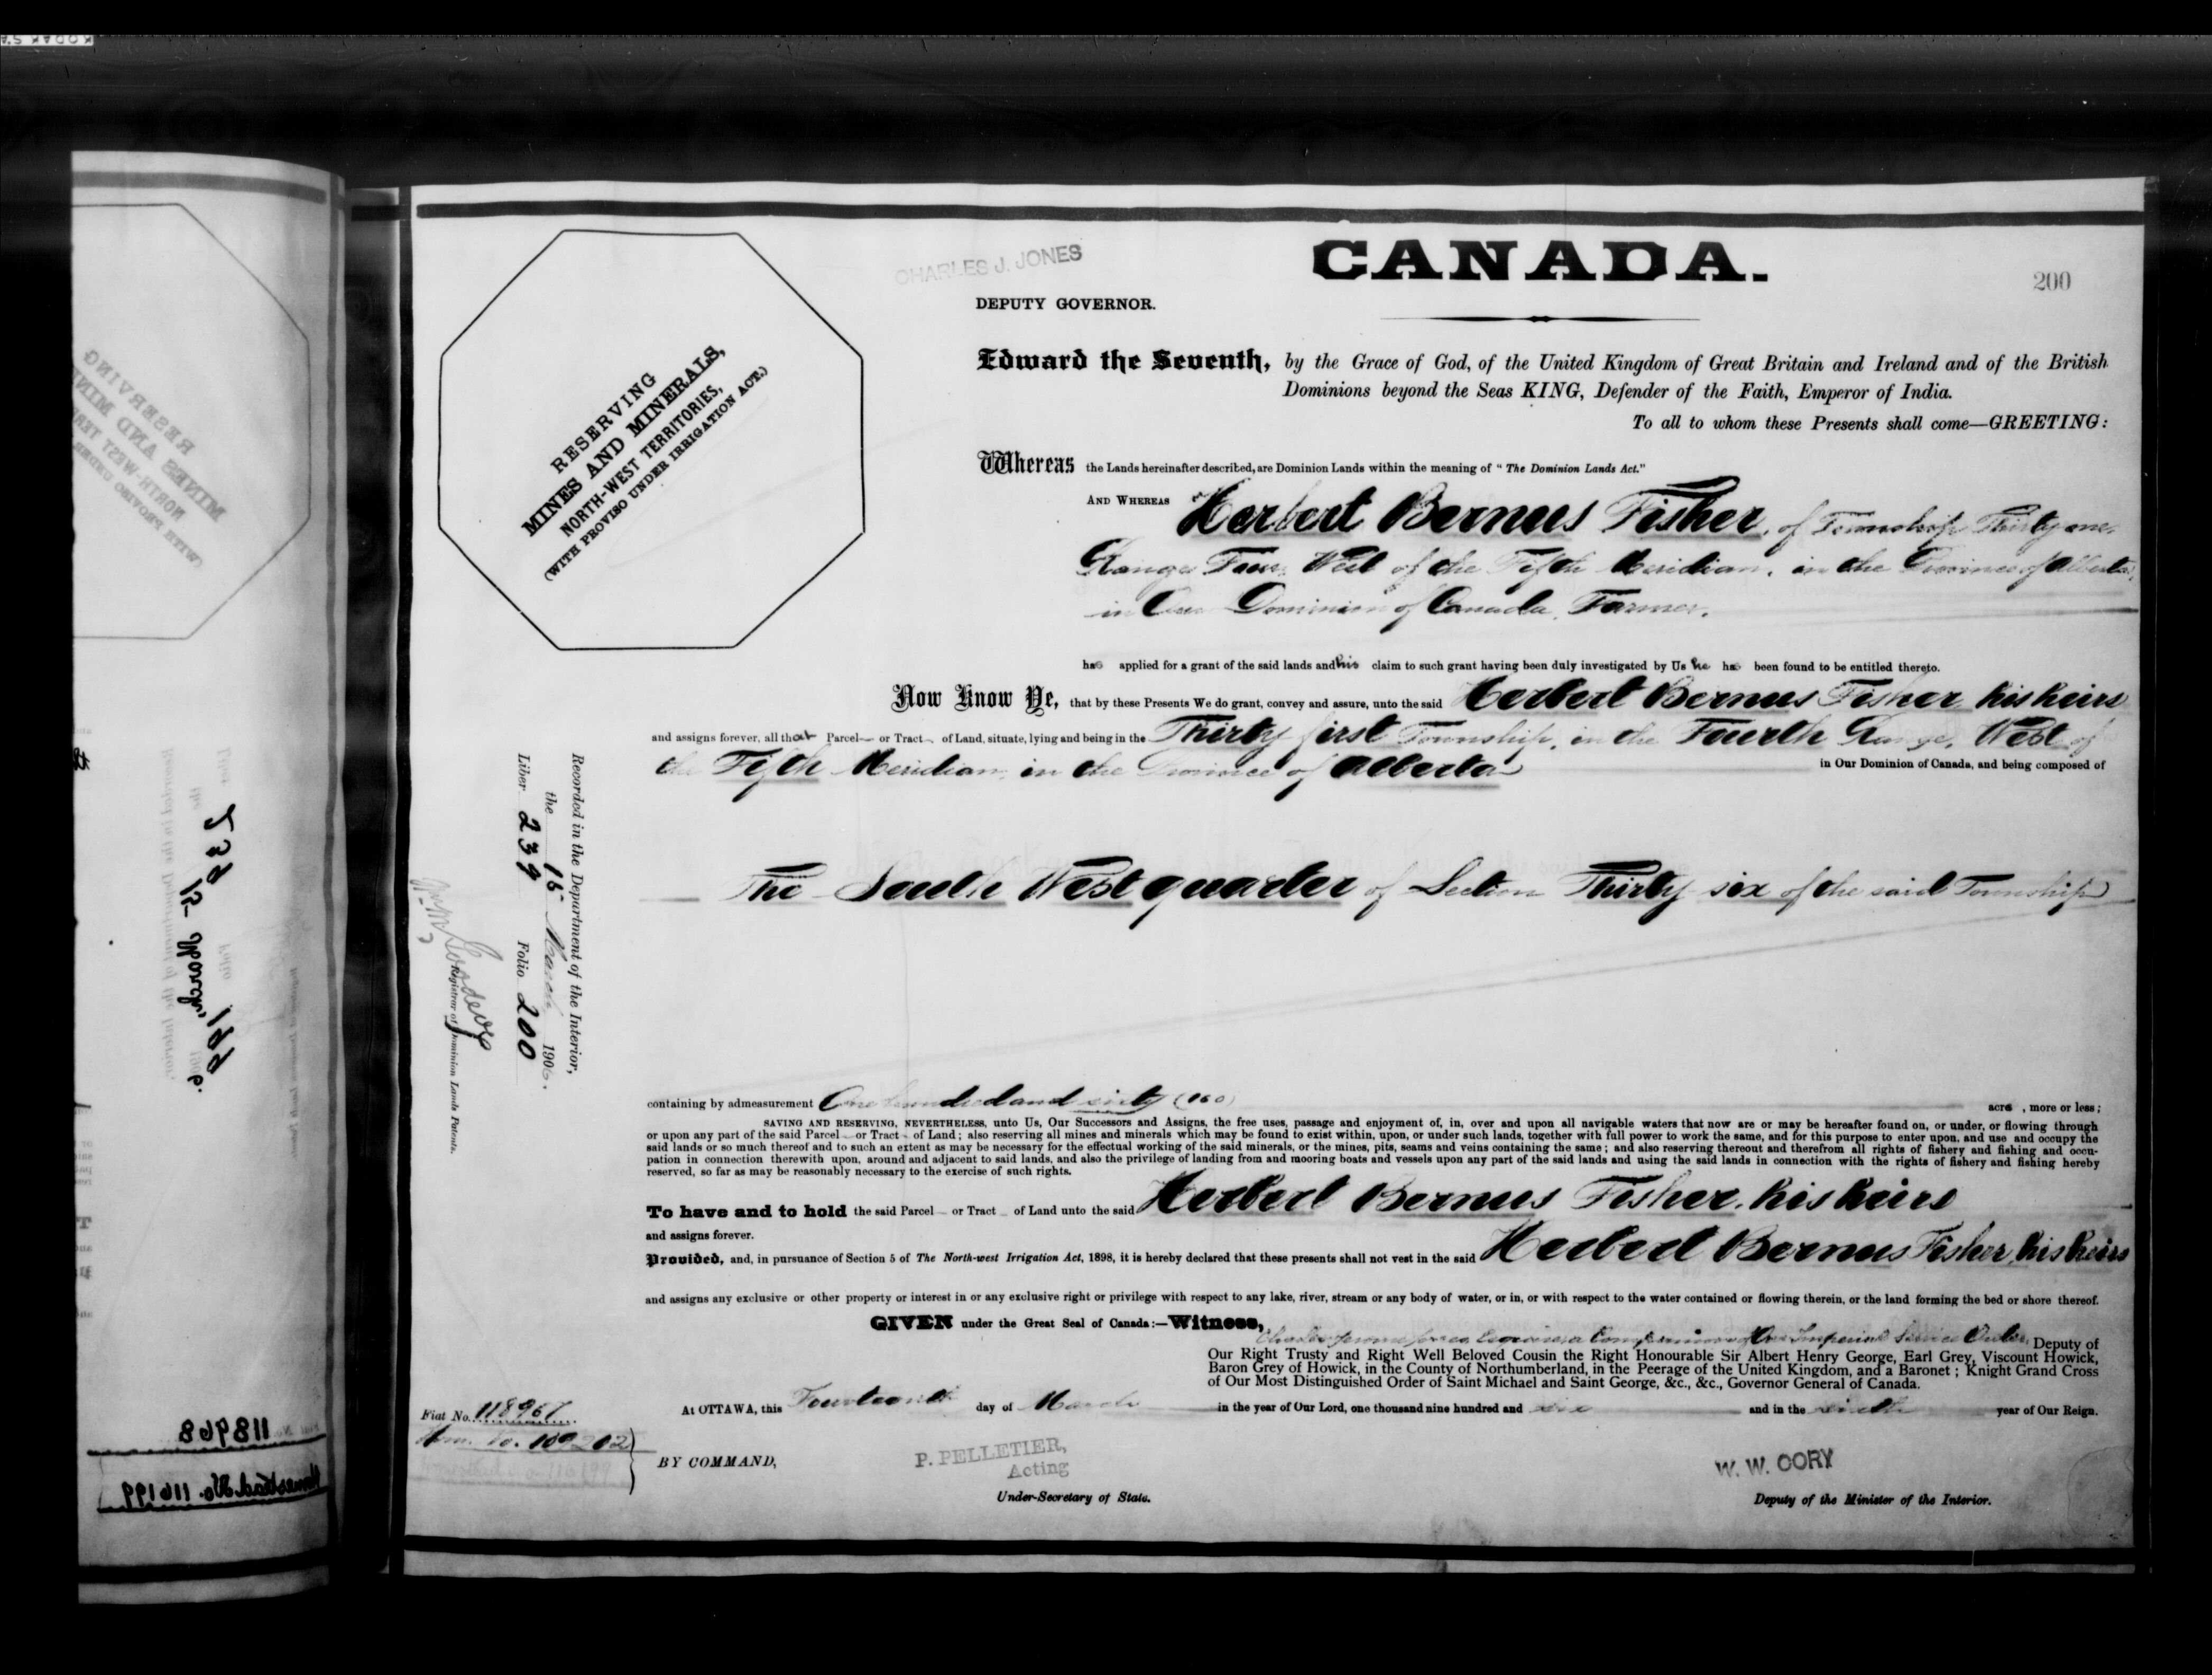 CHARLES J. JONES
CANADA.
200
DEPUTY GOVERNOR.
RESERVING
MINES AND MINERALS,
NORTH-WEST TERRITORIES,
(WITH PROVISO UNDER IRRIGATION ACT.)
Edward the Seventh, by the Grace of God, of the United Kingdom of Great Britain and Ireland and of the British
Dominions beyond the Seas KING, Defender of the Faith, Emperor of India.
To all to whom these Presents shall come—GREETING:
Whereas the Lands hereinafter described, are Dominion Lands within the meaning of "The Dominion Lands Act."
AND WHEREAS Herbert Bernus Fisher, of Township Thirty one,
Range Four, West of the Fifth Meridian, in the Province of Alberta,
in Our Dominion of Canada, Farmer,
has applied for a grant of the said lands and his claim to such grant having been duly investigated by Us he has been found to be entitled thereto.
Now Know Ye, that by these Presents We do grant, convey and assure, unto the said Herbert Bernus Fisher his heirs
and assigns forever, all that Parcel or Tract of Land, situate, lying and being in the Thirty first Township, in the Fourth Range, West of
the Fifth Meridian, in the Province of Alberta in Our Dominion of Canada, and being composed of
The South West quarter of Section Thirty six of the said Township
Recorded in the Department of the Interior,
the 15 March 1906.
Liber 239 Folio 200
Registrar of Dominion Lands Patents.
containing by admeasurement One hundred and sixty (160) acres, more or less;
SAVING AND RESERVING, NEVERTHELESS, unto Us, Our Successors and Assigns, the free uses, passage and enjoyment of, in, over and upon all navigable waters that now are or may be hereafter found on, or under, or flowing through
or upon any part of the said Parcel or Tract of Land; also reserving all mines and minerals which may be found to exist within, upon, or under such lands, together with full power to work the same, and for this purpose to enter upon, and use and occupy the
said lands or so much thereof and to such an extent as may be necessary for the effectual working of the said minerals, or the mines, pits, seams and veins containing the same; and also reserving thereout and therefrom all rights of fishery and fishing and occu-
pation in connection therewith upon, around and adjacent to said lands, and also the privilege of landing from and mooring boats and vessels upon any part of the said lands and using the said lands in connection with the rights of fishery and fishing hereby
reserved, so far as may be reasonably necessary to the exercise of such rights.
To have and to hold the said Parcel or Tract of Land unto the said Herbert Bernus Fisher, his heirs
and assigns forever.
Provided, and, in pursuance of Section 5 of The North-west Irrigation Act, 1898, it is hereby declared that these presents shall not vest in the said Herbert Bernus Fisher, his heirs
and assigns any exclusive or other property or interest in or any exclusive right or privilege with respect to any lake, river, stream or any body of water, or in, or with respect to the water contained or flowing therein, or the land forming the bed or shore thereof.
GIVEN under the Great Seal of Canada:—Witness,
Charles Jerome Jones, Esquire, a Companion of Our Imperial Service Order, Deputy of
Our Right Trusty and Right Well Beloved Cousin the Right Honourable Sir Albert Henry George, Earl Grey, Viscount Howick,
Baron Grey of Howick, in the County of Northumberland, in the Peerage of the United Kingdom, and a Baronet; Knight Grand Cross
of Our Most Distinguished Order of Saint Michael and Saint George, &c., &c., Governor General of Canada.
At OTTAWA, this Fourteenth day of March in the year of Our Lord, one thousand nine hundred and six and in the sixth year of Our Reign.
Fiat No. 118967
Hom. No. 109202
BY COMMAND,
P. PELLETIER,
Acting
Under-Secretary of State.
W. W. CORY
Deputy of the Minister of the Interior.
118968
Homestead No. 116199